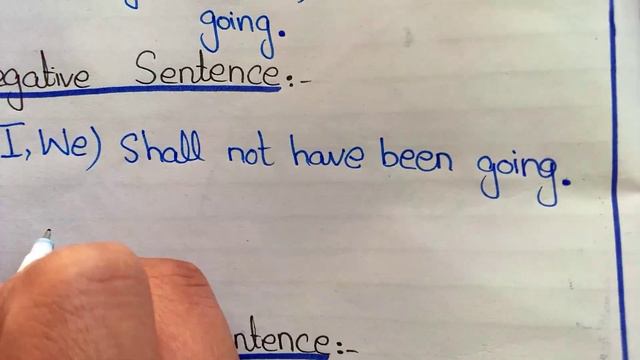 going.
egative Sentence:-
I, We) Shall not have been going.
ntence:-